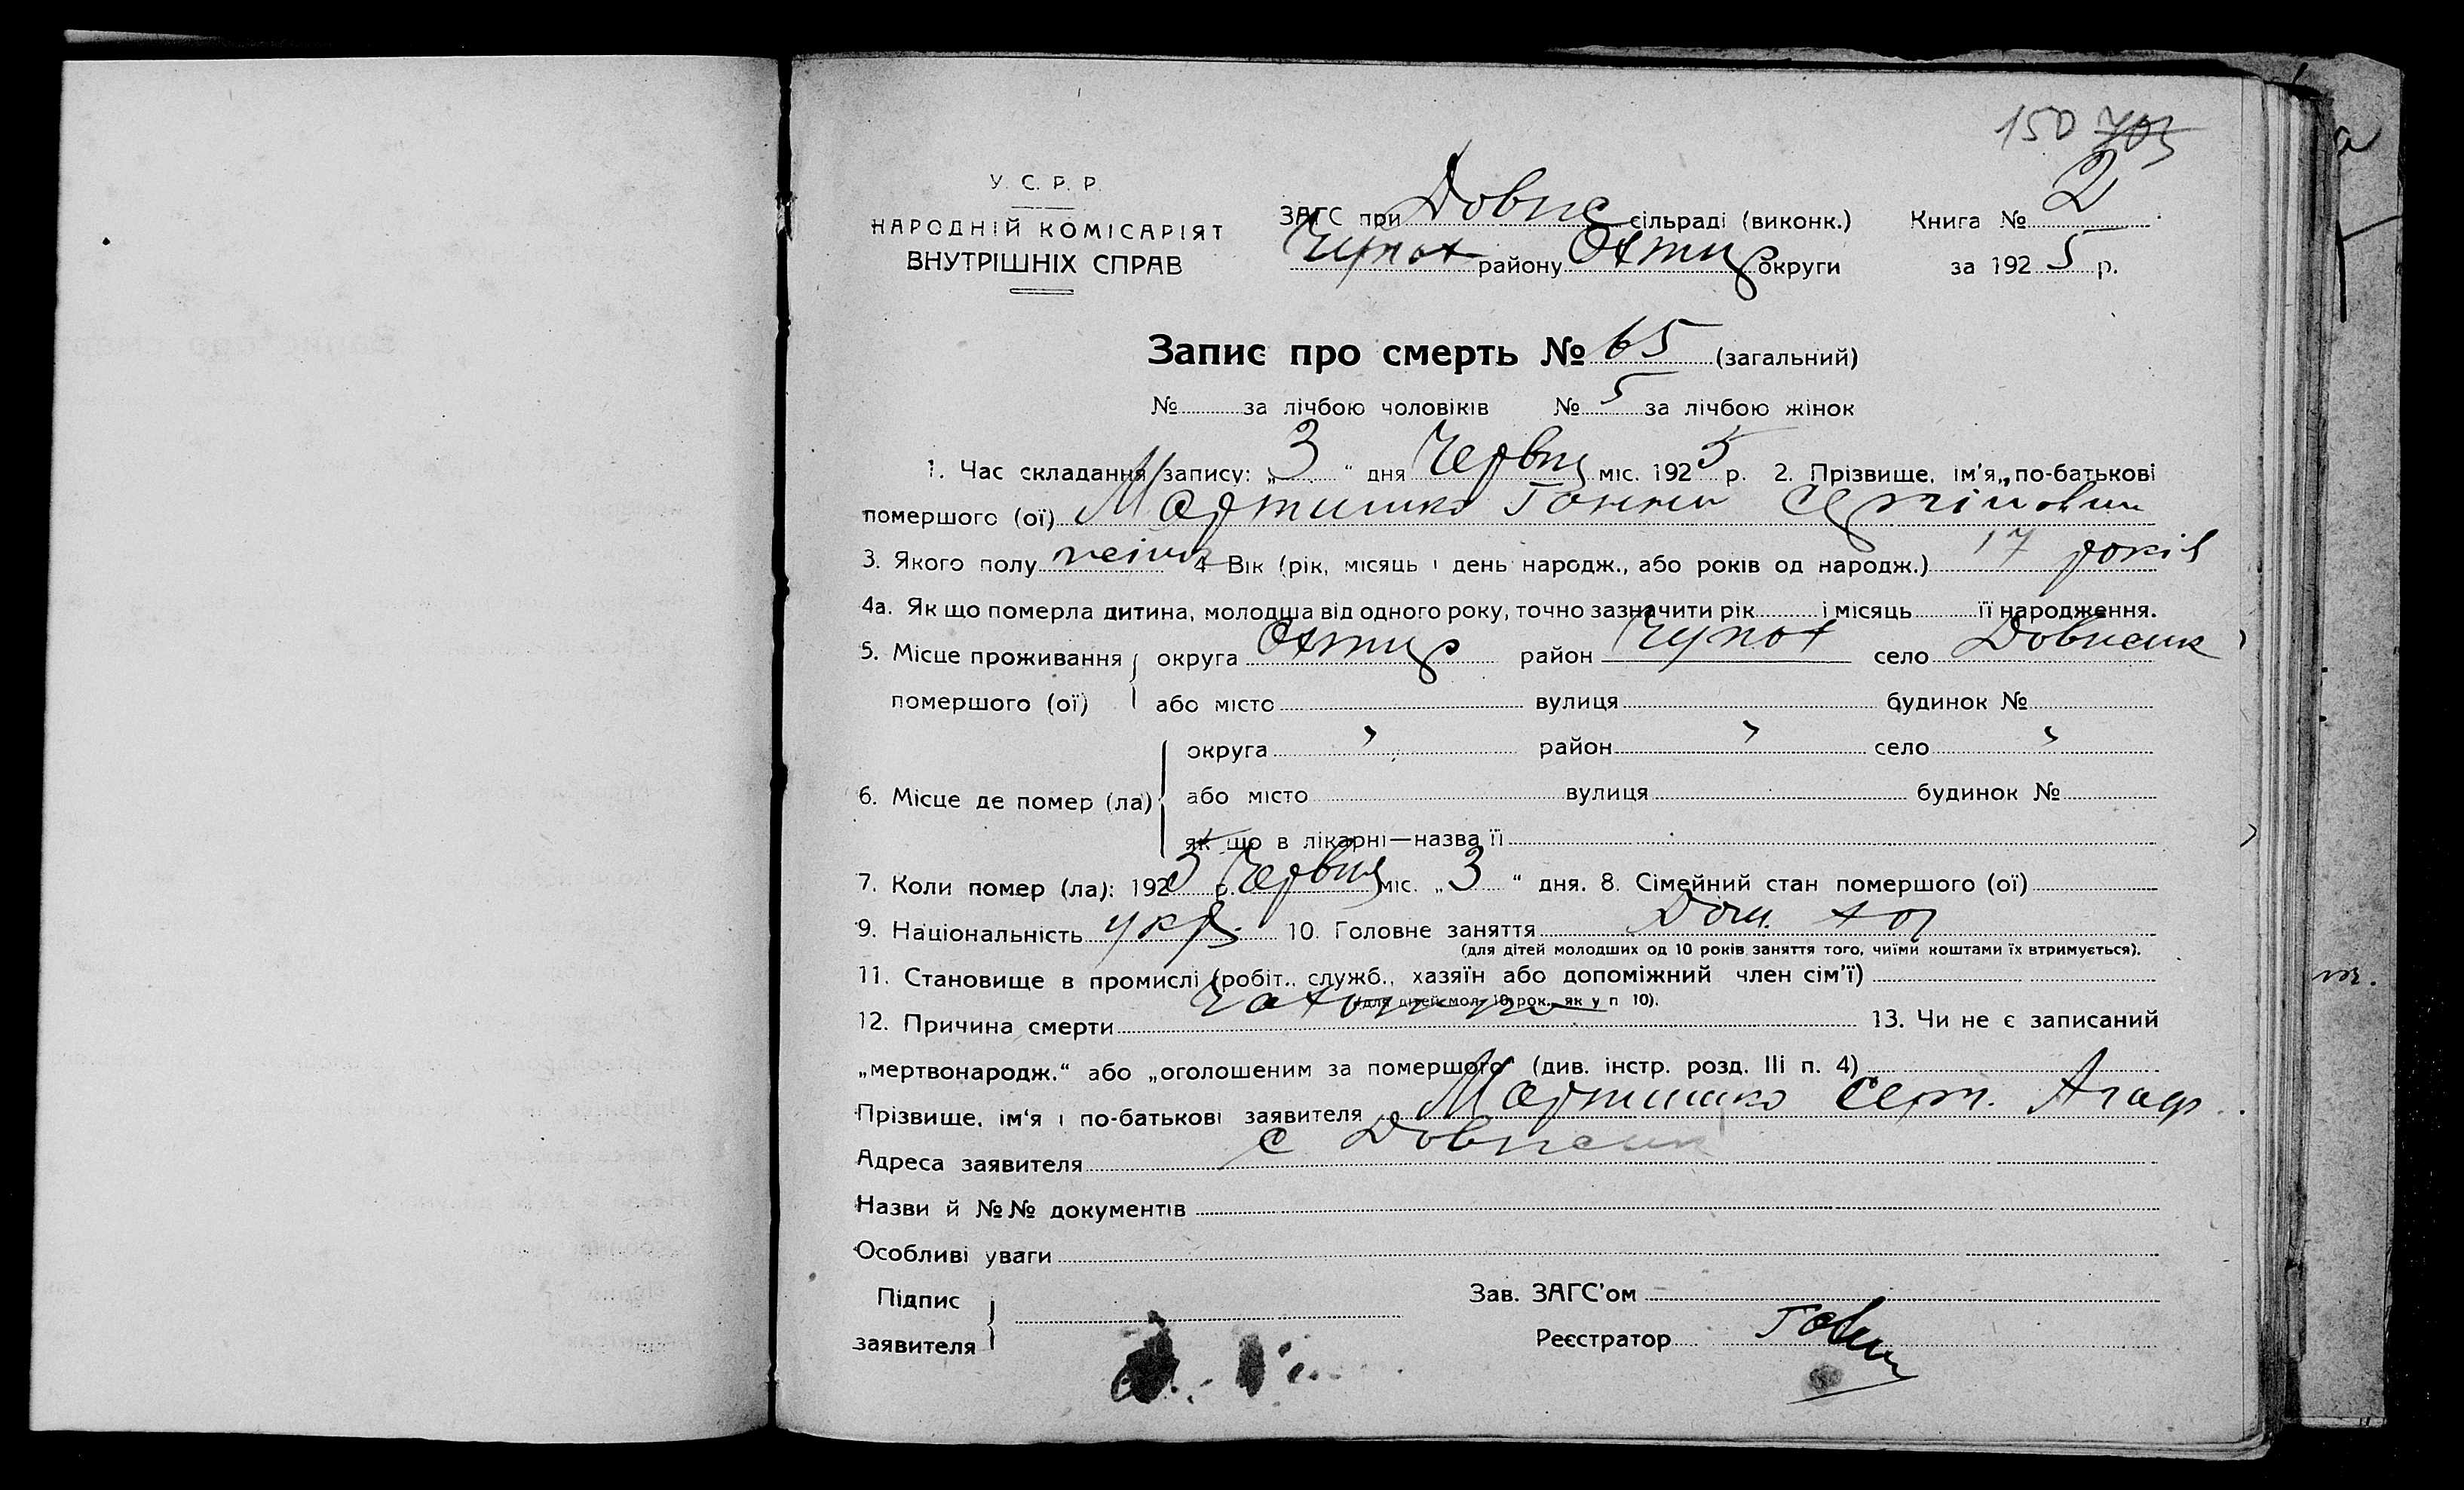 150 703
У. С. Р. Р.
НАРОДНІЙ КОМІСАРІЯТ
ВНУТРІШНІХ СПРАВ
ЗАГС при Довне сільраді (виконк.) Книга № 2
Чупах району Охтир округи за 1925 р.
Запис про смерть № 65 (загальний)
№ за лічбою чоловіків № 5 за лічбою жінок
1. Час складання запису: „3“ дня Червня міс. 1925 р. 2. Прізвище, ім'я, по-батькові
помершого (ої) Мартишко Ганни Сергіповни
3. Якого полу 4 Вік (рік, місяць і день народж., або років од народж.) 17 років
4а. Як що померла дитина, молодша від одного року, точно зазначити рік і місяць її народження.
5. Місце проживання округа Охтир район Чупах село
помершого (ої) або місто вулиця будинок №
округа „ район „ село „
6. Місце де помер (ла) або місто вулиця будинок №
як що в лікарні—назва її
7. Коли помер (ла): 1925 р. Червня міс. „3“ дня. 8. Сімейний стан помершого (ої)
9. Національність укр. 10. Головне заняття Дом. хоз
(для дітей молодших од 10 років заняття того, чиїми коштами їх втримується).
11. Становище в промислі (робіт., служб., хазяїн або допоміжний член сім'ї)
(для дітей мол. 10 рок., як у п 10).
12. Причина смерти Чахотка 13. Чи не є записаний
„мертвонародж.“ або „оголошеним за помершого“ (див. інстр. розд. III п. 4)
Прізвище, ім'я і по-батькові заявителя Мартишко Серг. Агаф.
Адреса заявителя с
Назви й №№ документів
Особливі уваги
Підпис Зав. ЗАГС'ом
заявителя Реєстратор